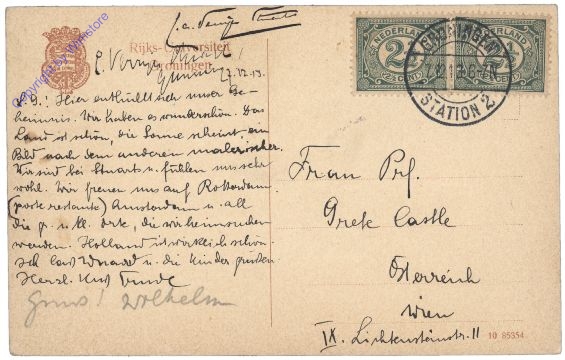 Rijks-Universiteit
Groningen
7.12.13.
L. G.! Hier enthüllt sich unser Ge-
heimnis. Wir haben es wunderschön. Das
Land ist schön, die Sonne scheint, ein
Bild nach dem anderen malerischer.
Wir sind bei Stuarts u. fühlen uns sehr
wohl. Wir freuen uns auf Rotterdam
(poste restante) Amsterdam u. all
die gr. u. kl. Orte, die wir heimsuchen
werden. Holland ist wirklich schön.
Ich lass u. die Kinder grüssen.
Herzl. Kuss Trude
Gruss! Wilhelm
NEDERLAND
2½
(2½ CENT)
NEDERLAND
CENT)
GRONINGEN
STATION 2
Frau Prf.
Grete Castle
Österreich
Wien
IX. Lichtensteinstr. 11
10 85354
Copyright by